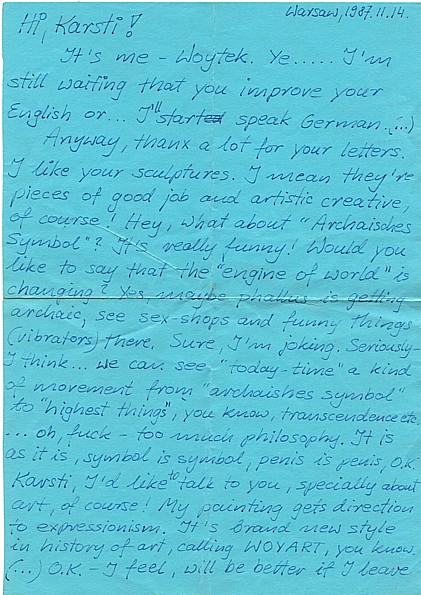 Warsaw, 1987.11.14.
Hi, Karsti!
It's me - Woytek. Ye..... I'm
still waiting that you improve your
English or... I'll started speak German.(...)
Anyway, thanx a lot for your letters.
I like your sculptures. I mean they're
pieces of good job and artistic creative,
of course! Hey, what about "Archaisches
Symbol"? It's really funny! Would you
like to say that the "engine of world" is
changing? Yes, maybe phallus is getting
archaic, see sex-shops and funny things
(vibrators) there. Sure, I'm joking. Seriously-
I think... we can see "today-time" a kind
of movement from "archaishes symbol"
to "highest things", you know, transcendence etc.
... oh, fuck - too much philosophy. It is
as it is, symbol is symbol, penis is penis, O.K.
Karsti, I'd like to talk to you, specially about
art, of course! My painting gets direction
to expressionism. It's brand new style
in history of art, calling WOYART, you know.
(...) O.K. - I feel, will be better if I leave